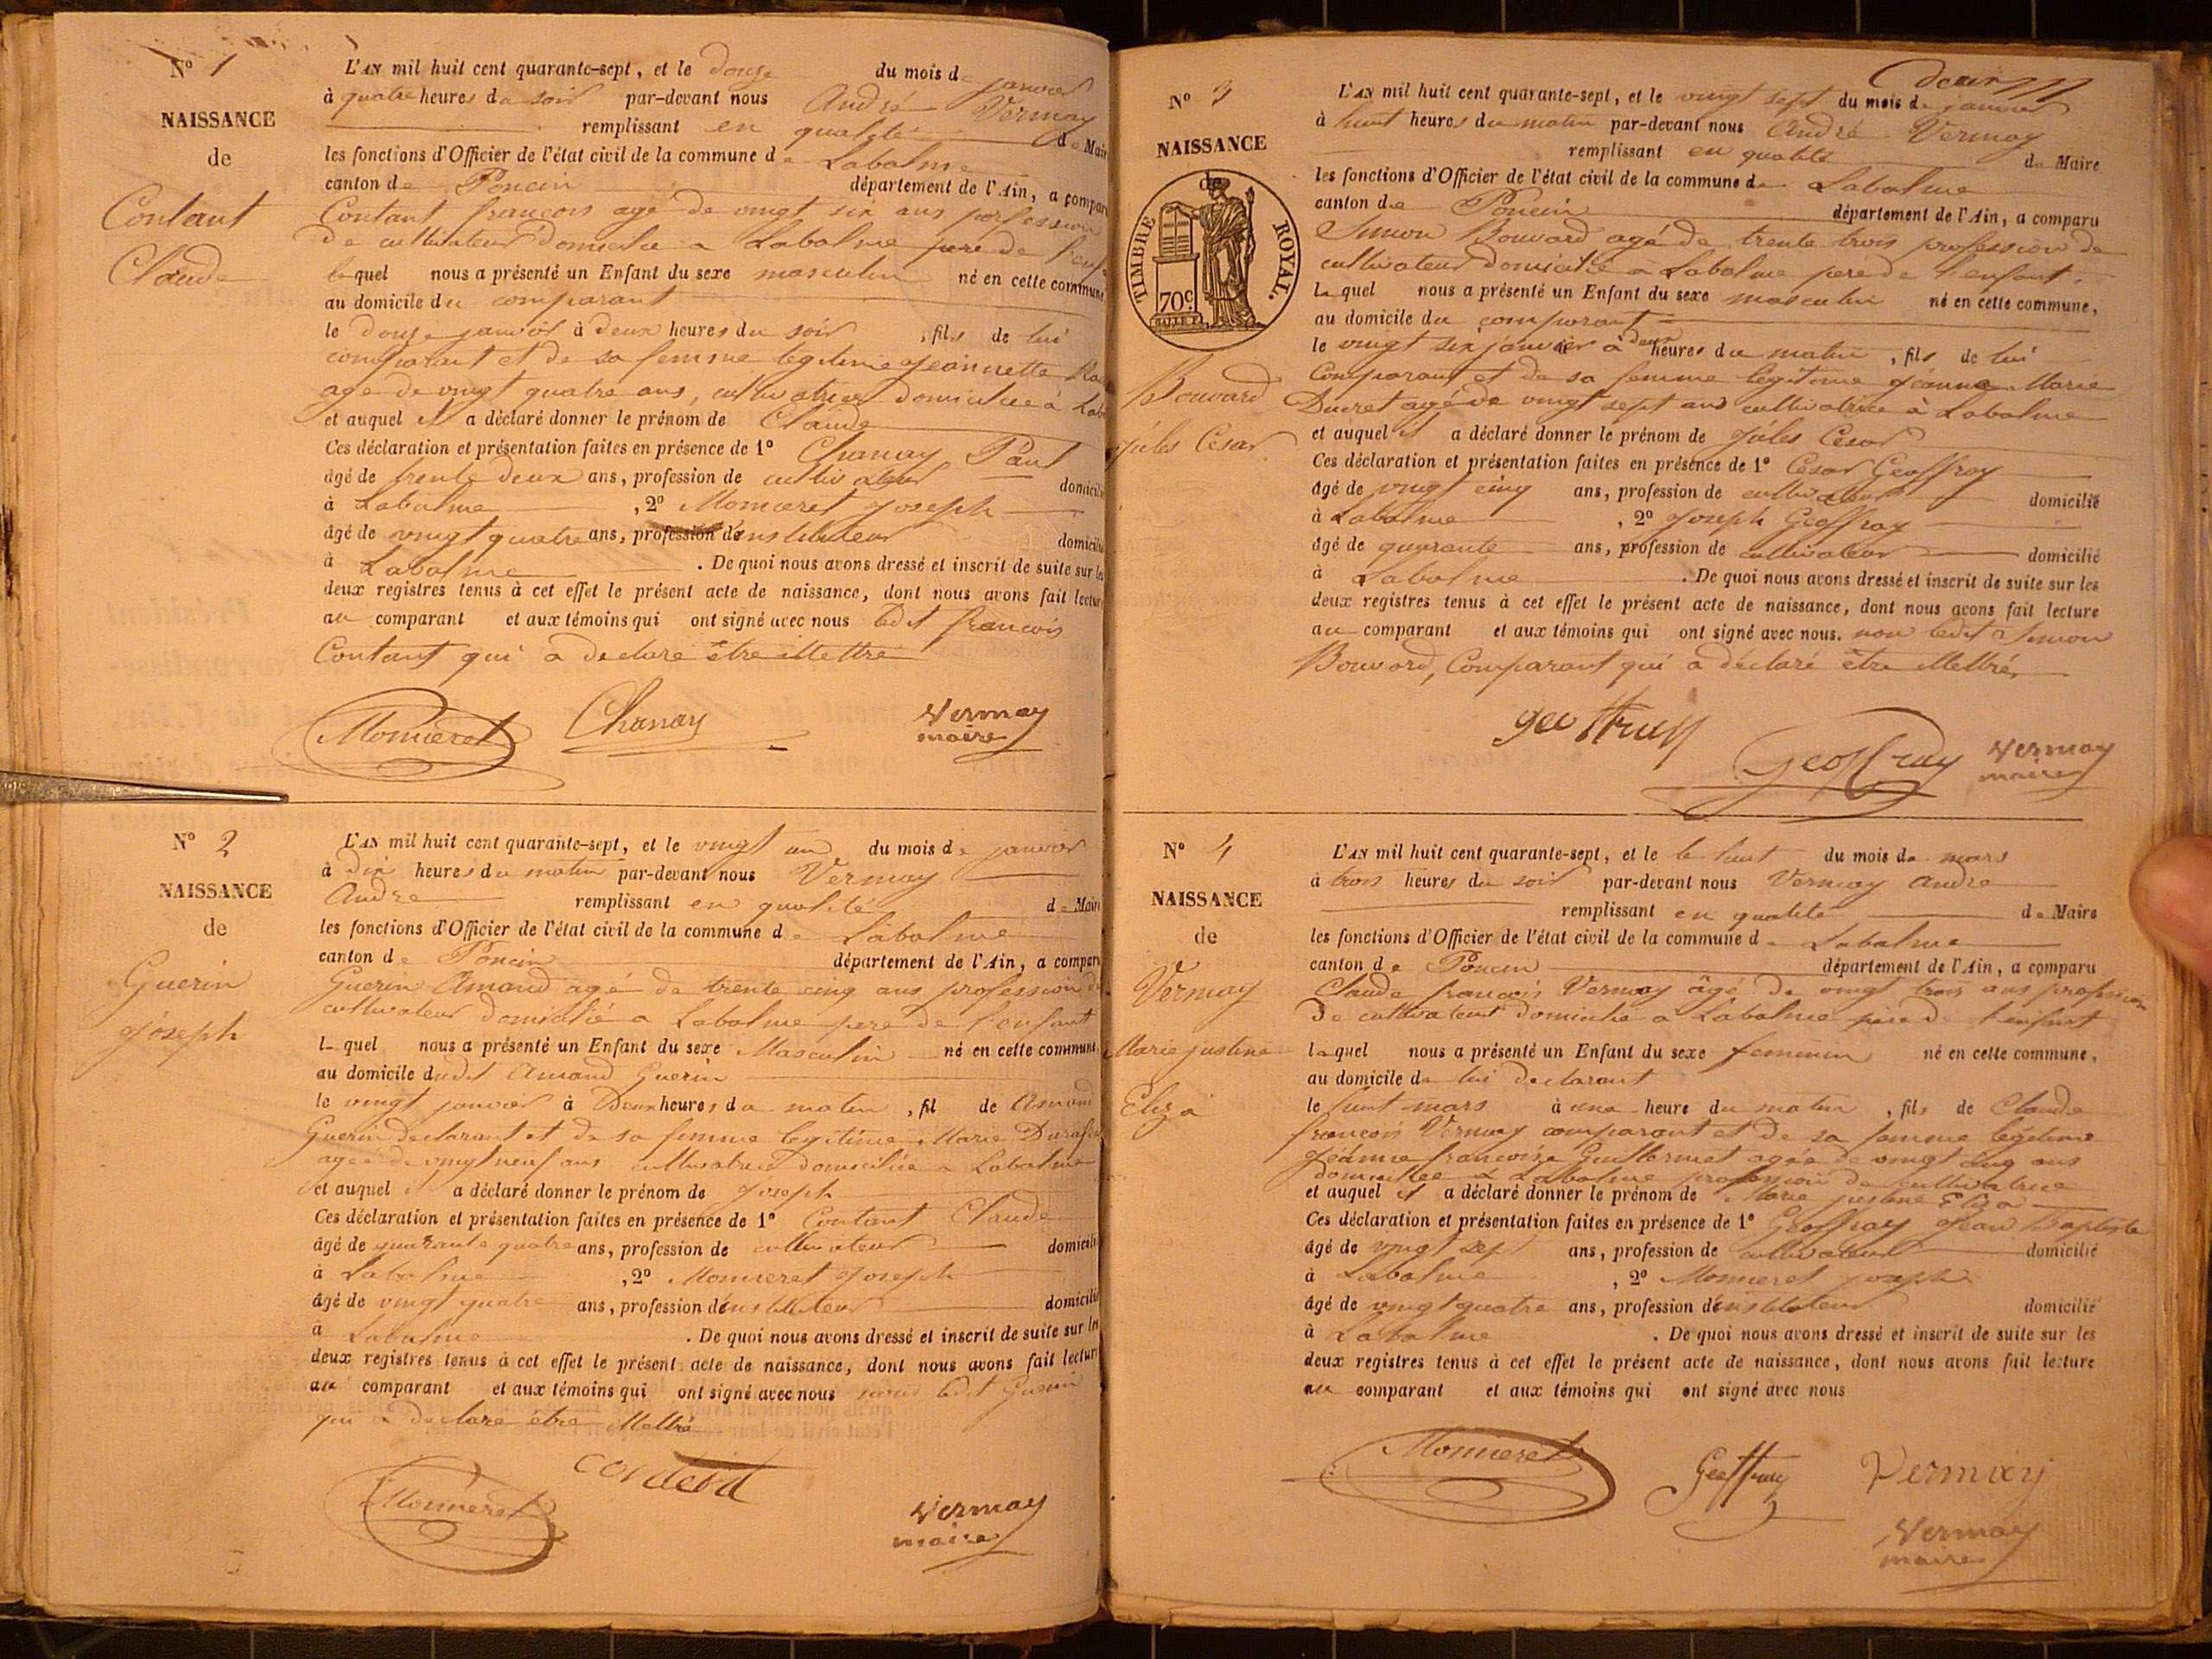 N° 1
NAISSANCE
de
Contant
Claude
L'AN mil huit cent quarante-sept, et le douze du mois de janvier
à quatre heures du soir par-devant nous André Vermay
remplissant en qualité de Maire
les fonctions d'Officier de l'état civil de la commune de Labalme
canton de Poncin département de l'Ain, a comparu
Contant francois agé de vingt six ans profession
de cultivateur domicilie a Labalme pere de l'enf
lequel nous a présenté un Enfant du sexe masculin né en cette commune
au domicile du comparant
le douze janvier à deux heures du soir , fils de lui
comparant et de sa femme legitime Jeannette
age de vingt quatre ans, cultivatrice domiciliee à Laba
et auquel il a déclaré donner le prénom de Claude
Ces déclaration et présentation faites en présence de 1° Chanay Paul
âgé de trente deux ans, profession de cultivateur domicilié
à Labalme , 2° Monieret Joseph
âgé de vingt quatre ans, profession d'instituteur domicilié
à Labalme . De quoi nous avons dressé et inscrit de suite sur les
deux registres tenus à cet effet le présent acte de naissance, dont nous avons fait lecture
au comparant et aux témoins qui ont signé avec nous ledit francois
Contant qui a declaré être illettré
Monieret Chanay Vermay
maire
N° 2
NAISSANCE
de
Guerin
Joseph
L'AN mil huit cent quarante-sept, et le vingt un du mois de janvier
à dix heures du matin par-devant nous Vermay
André remplissant en qualité de Maire
les fonctions d'Officier de l'état civil de la commune de Labalme
canton de Poncin département de l'Ain, a comparu
Guerin Amand agé de trente cinq ans profession de
cultivateur domicilié a Labalme pere de l'enfant
lequel nous a présenté un Enfant du sexe Masculin né en cette commune,
au domicile dudit Amand Guerin
le vingt janvier à Deux heures du matin , fil de Amand
Guerin declarant et de sa femme legitime Marie
ageé de vingt neuf ans cultivatrice domiciliée a Labalme
et auquel il a déclaré donner le prénom de Joseph
Ces déclaration et présentation faites en présence de 1° Contant Claude
âgé de quarante quatre ans, profession de cultivateur domicilié
à Labalme , 2° Monieret Joseph
âgé de vingt quatre ans, profession d'instituteur domicilié
à Labalme . De quoi nous avons dressé et inscrit de suite sur les
deux registres tenus à cet effet le présent acte de naissance, dont nous avons fait lecture
au comparant et aux témoins qui ont signé avec nous non ledit Guerin
qui a declaré être illettré
Monieret Vermay
maire
deux
N° 3
NAISSANCE
de
TIMBRE ROYAL.
70c
Bouvard
Jules César
L'AN mil huit cent quarante-sept, et le vingt sept du mois de janvier
à huit heures du matin par-devant nous André Vermay
remplissant en qualité de Maire
les fonctions d'Officier de l'état civil de la commune de Labalme
canton de Poncin département de l'Ain, a comparu
Simon Bouvard agé de trente trois profession de
cultivateur domicilié a Labalme pere de l'enfant.
Lequel nous a présenté un Enfant du sexe masculin né en cette commune,
au domicile du comparant
le vingt six janvier à deux heures du matin , fils de lui
Comparant et de sa femme legitime Jeanne Marie
Ducret agé de vingt sept ans cultivatrice à Labalme
et auquel il a déclaré donner le prénom de Jules César
Ces déclaration et présentation faites en présence de 1° César Geoffray
âgé de vingt cinq ans, profession de cultivateur domicilié
à Labalme , 2° Joseph Geoffray
âgé de quarante ans, profession de cultivateur domicilié
à Labalme . De quoi nous avons dressé et inscrit de suite sur les
deux registres tenus à cet effet le présent acte de naissance, dont nous avons fait lecture
au comparant et aux témoins qui ont signé avec nous. non ledit Simon
Bouvard, Comparant qui a déclaré être illettré,
Geoffray Vermay
maire
N° 4
NAISSANCE
de
Vermay
Marie justine
Eliza
L'AN mil huit cent quarante-sept, et le le huit du mois de mars
à trois heures du soir par-devant nous Vermay André
remplissant en qualité de Maire
les fonctions d'Officier de l'état civil de la commune de Labalme
canton de Poncin département de l'Ain, a comparu
Claude françois Vermay âgé de vingt trois ans profession
De cultivateur domicilié a Labalme pere de l'enfant
lequel nous a présenté un Enfant du sexe feminin né en cette commune,
au domicile de lui declarant
le huit mars à une heure du matin , fils de Claude
françois Vermay comparant et de sa femme légitime
Jeanne francoise Guillermet agée de vingt cinq ans
domiciliee a Labalme profession de cultivatrice
et auquel il a déclaré donner le prénom de Marie justine Eliza
Ces déclaration et présentation faites en présence de 1° Geoffray Jean Baptiste
âgé de vingt sept ans, profession de cultivateur domicilié
à Labalme , 2° Monieret Joseph
âgé de vingt quatre ans, profession d'instituteur domicilié
à Labalme . De quoi nous avons dressé et inscrit de suite sur les
deux registres tenus à cet effet le présent acte de naissance, dont nous avons fait lecture
au comparant et aux témoins qui ont signé avec nous
Monieret Geoffray Vermay
Vermay
maire